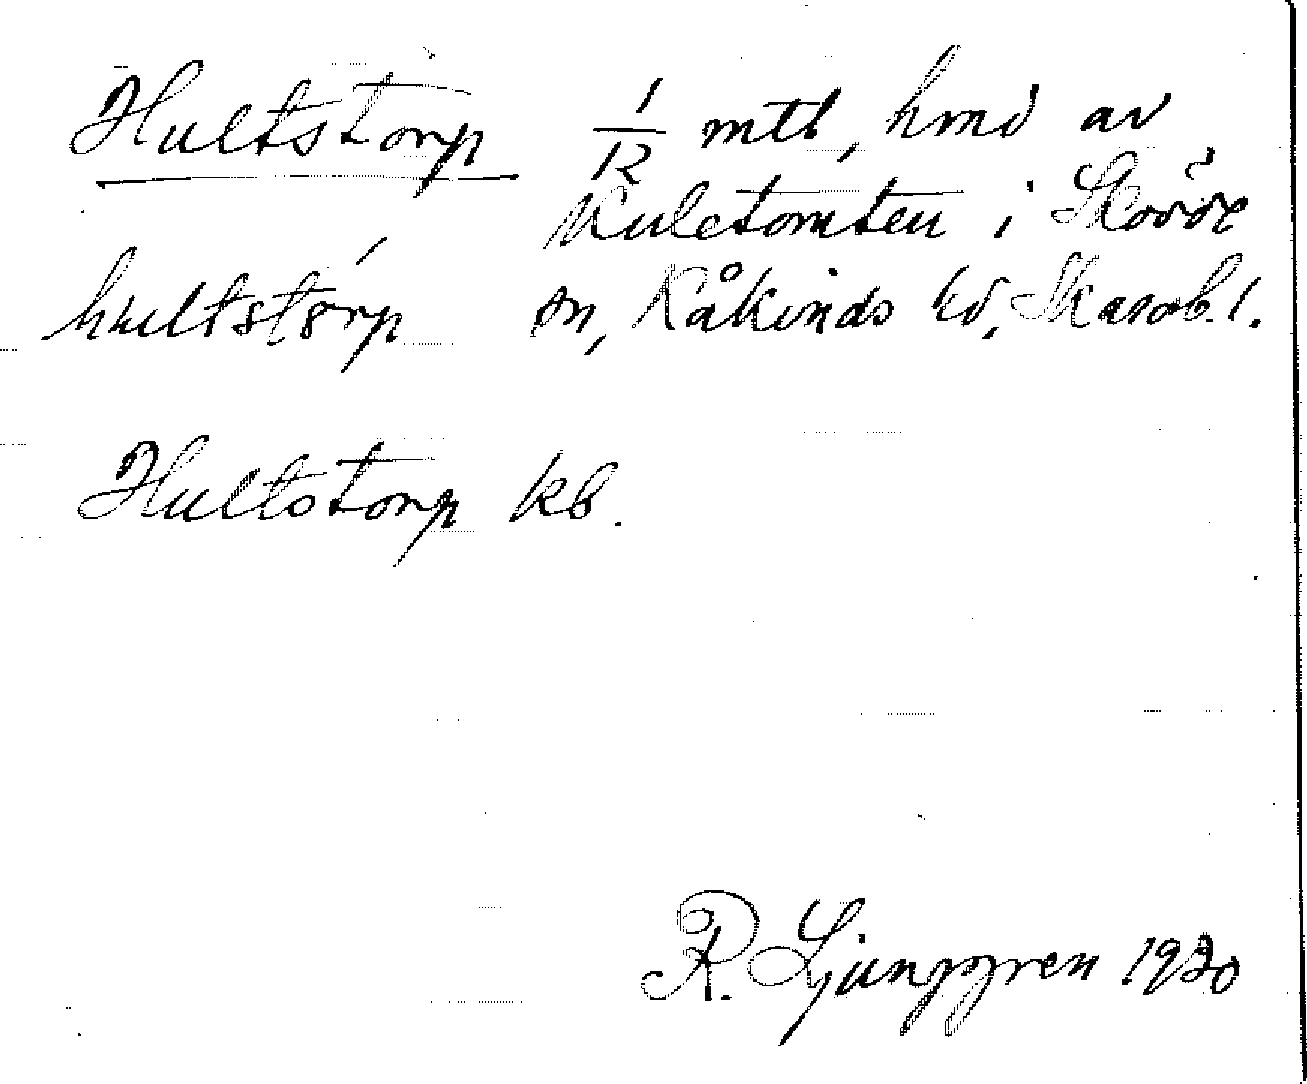 Hultstorp 1/12 mtl, hmd av
Kuletomten i Skövde
hultstórp sn, Kåkinds hd, Skarab. l.
Hultstorp kb.
R. Ljunggren 1920